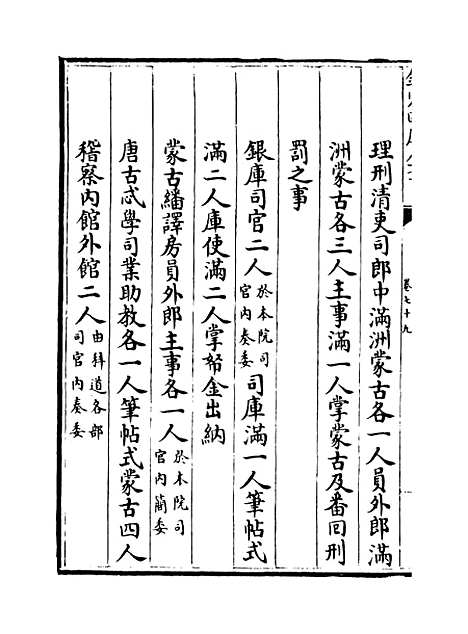 卷七十九
理刑清吏司郎中滿洲蒙古各一人員外郎滿
洲蒙古各三人主事滿一人掌蒙古及番回刑
罰之事
銀庫司官二人於本院司官內奏委司庫滿一人筆帖式
滿二人庫使滿二人掌帑金出納
蒙古繙譯房員外郎主事各一人於本院司官內蕳委
唐古忒學司業助教各一人筆帖式蒙古四人
稽察內館外館二人由拜道各部司官內奏委